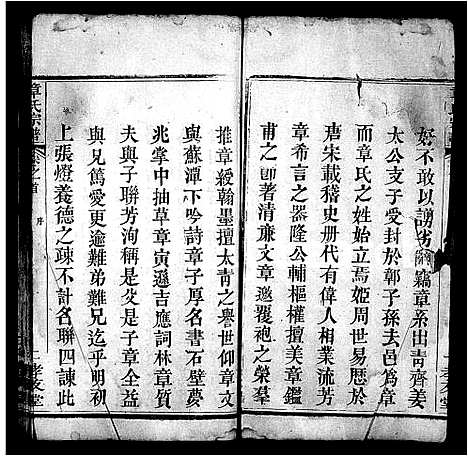 好不敢以謭劣辭竊章系出青齊姜
太公支子受封於鄣子孫去邑為章
而章氏之姓始立焉姬周世易厯年
唐宋載稽史册代有偉人相業流芳
章希言之器隆公輔樞權擅美章鑑
甫之卽著清亷文章邀獲袍之榮羣
推章綬翰墨擅太青之譽世仰章文
與蘇潭下吟詩章子厚名書石壁夢
兆掌中抽草章寅遜吉應詞林章質
夫與子聯芳洵稱是父是子章全益
與兄篤愛更逾難弟難兄迄乎明初
上張燈養德之疎不計名聯四諌此
章氏宗譜
卷之首
序
二
孝友堂